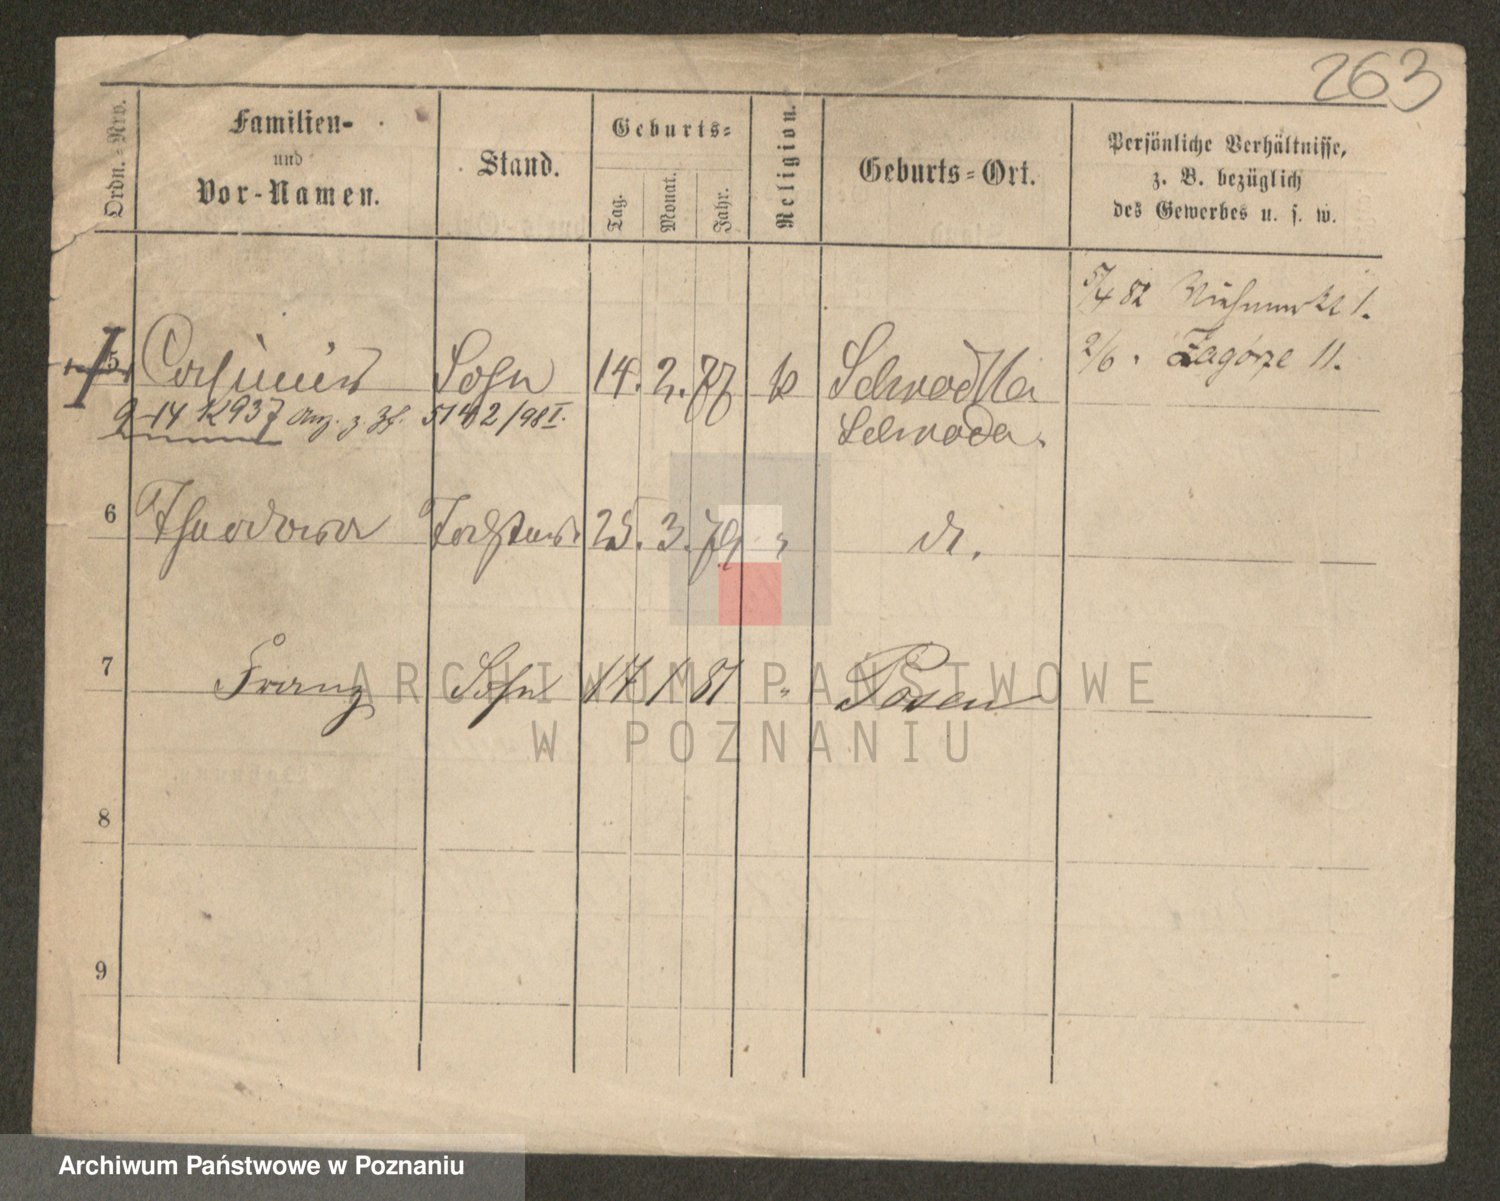 263
Ordn.-Nro.
Familien-
und
Vor-Namen.
Stand.
Geburts-
Tag.
Monat.
Jahr.
Religion.
Geburts-Ort.
Persönliche Verhältnisse,
z. B. bezüglich
des Gewerbes u. s. w.
5/4 82 Viehmarkt 1.
2/6 . Zagórze 11.
5 Casimir Sohn 14. 2. 77 k Schrodka
9-14 K937 Anz. z. 5142/98 I. Schroda.
6 Theodora Tochter 25. 3. 79 " do.
7 Franz Sohn 17 1 81 " Posen
8
9
ARCHIWUM PAŃSTWOWE
W POZNANIU
Archiwum Państwowe w Poznaniu